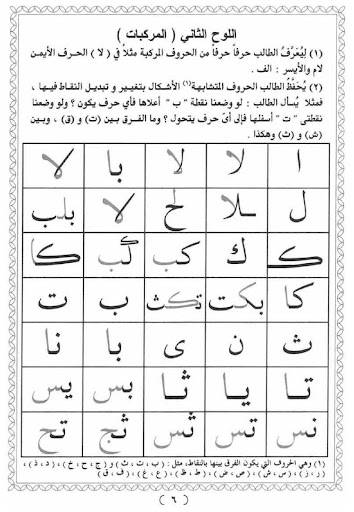 اللوح الثاني ( المركبات )
(١) لِيُعَرَّفُ الطالب حرفاً حرفاً من الحروف المركبة مثلاً في ( لا ) الحرف الأيمن
لام والأيسر : الف .
(٢) يُحَفَّظُ الطالب الحروف المتشابهة(١) الأشكال بتغيير و تبديل النقاط فيها ،
فمثلا يُسأل الطالب : لو وضعنا نقطة " ب " أعلاها فأي حرف يكون ؟ ولو وضعنا
نقطتى " ت " أسفلها فإلى أىّ حرف يتحول ؟ وما الفرق بين (ت) و (ق) ، وبين
(ش) و (ث) وهكذا .
ا لا لا با لا
ل سلا لح لا بلب
ك ك كب گب كا
كا بكت تكث ب ت
ث ن ى با نا
تا يا ثا بس يس
نس تس ثس ثج تح
(١) وهي الحروف التي يكون الفرق بينها بالنقاط، مثل : ( ب ، ت ، ث ) و ( ج ، ح ، خ ) ، ( د ، ذ ) ،
( ر ، ز ) ، ( س ، ش ) ، ( ص ، ض ) ، ( ط ، ظ ) ، ( ع ، غ ) ، ( ف ، ق )
( ٦ )